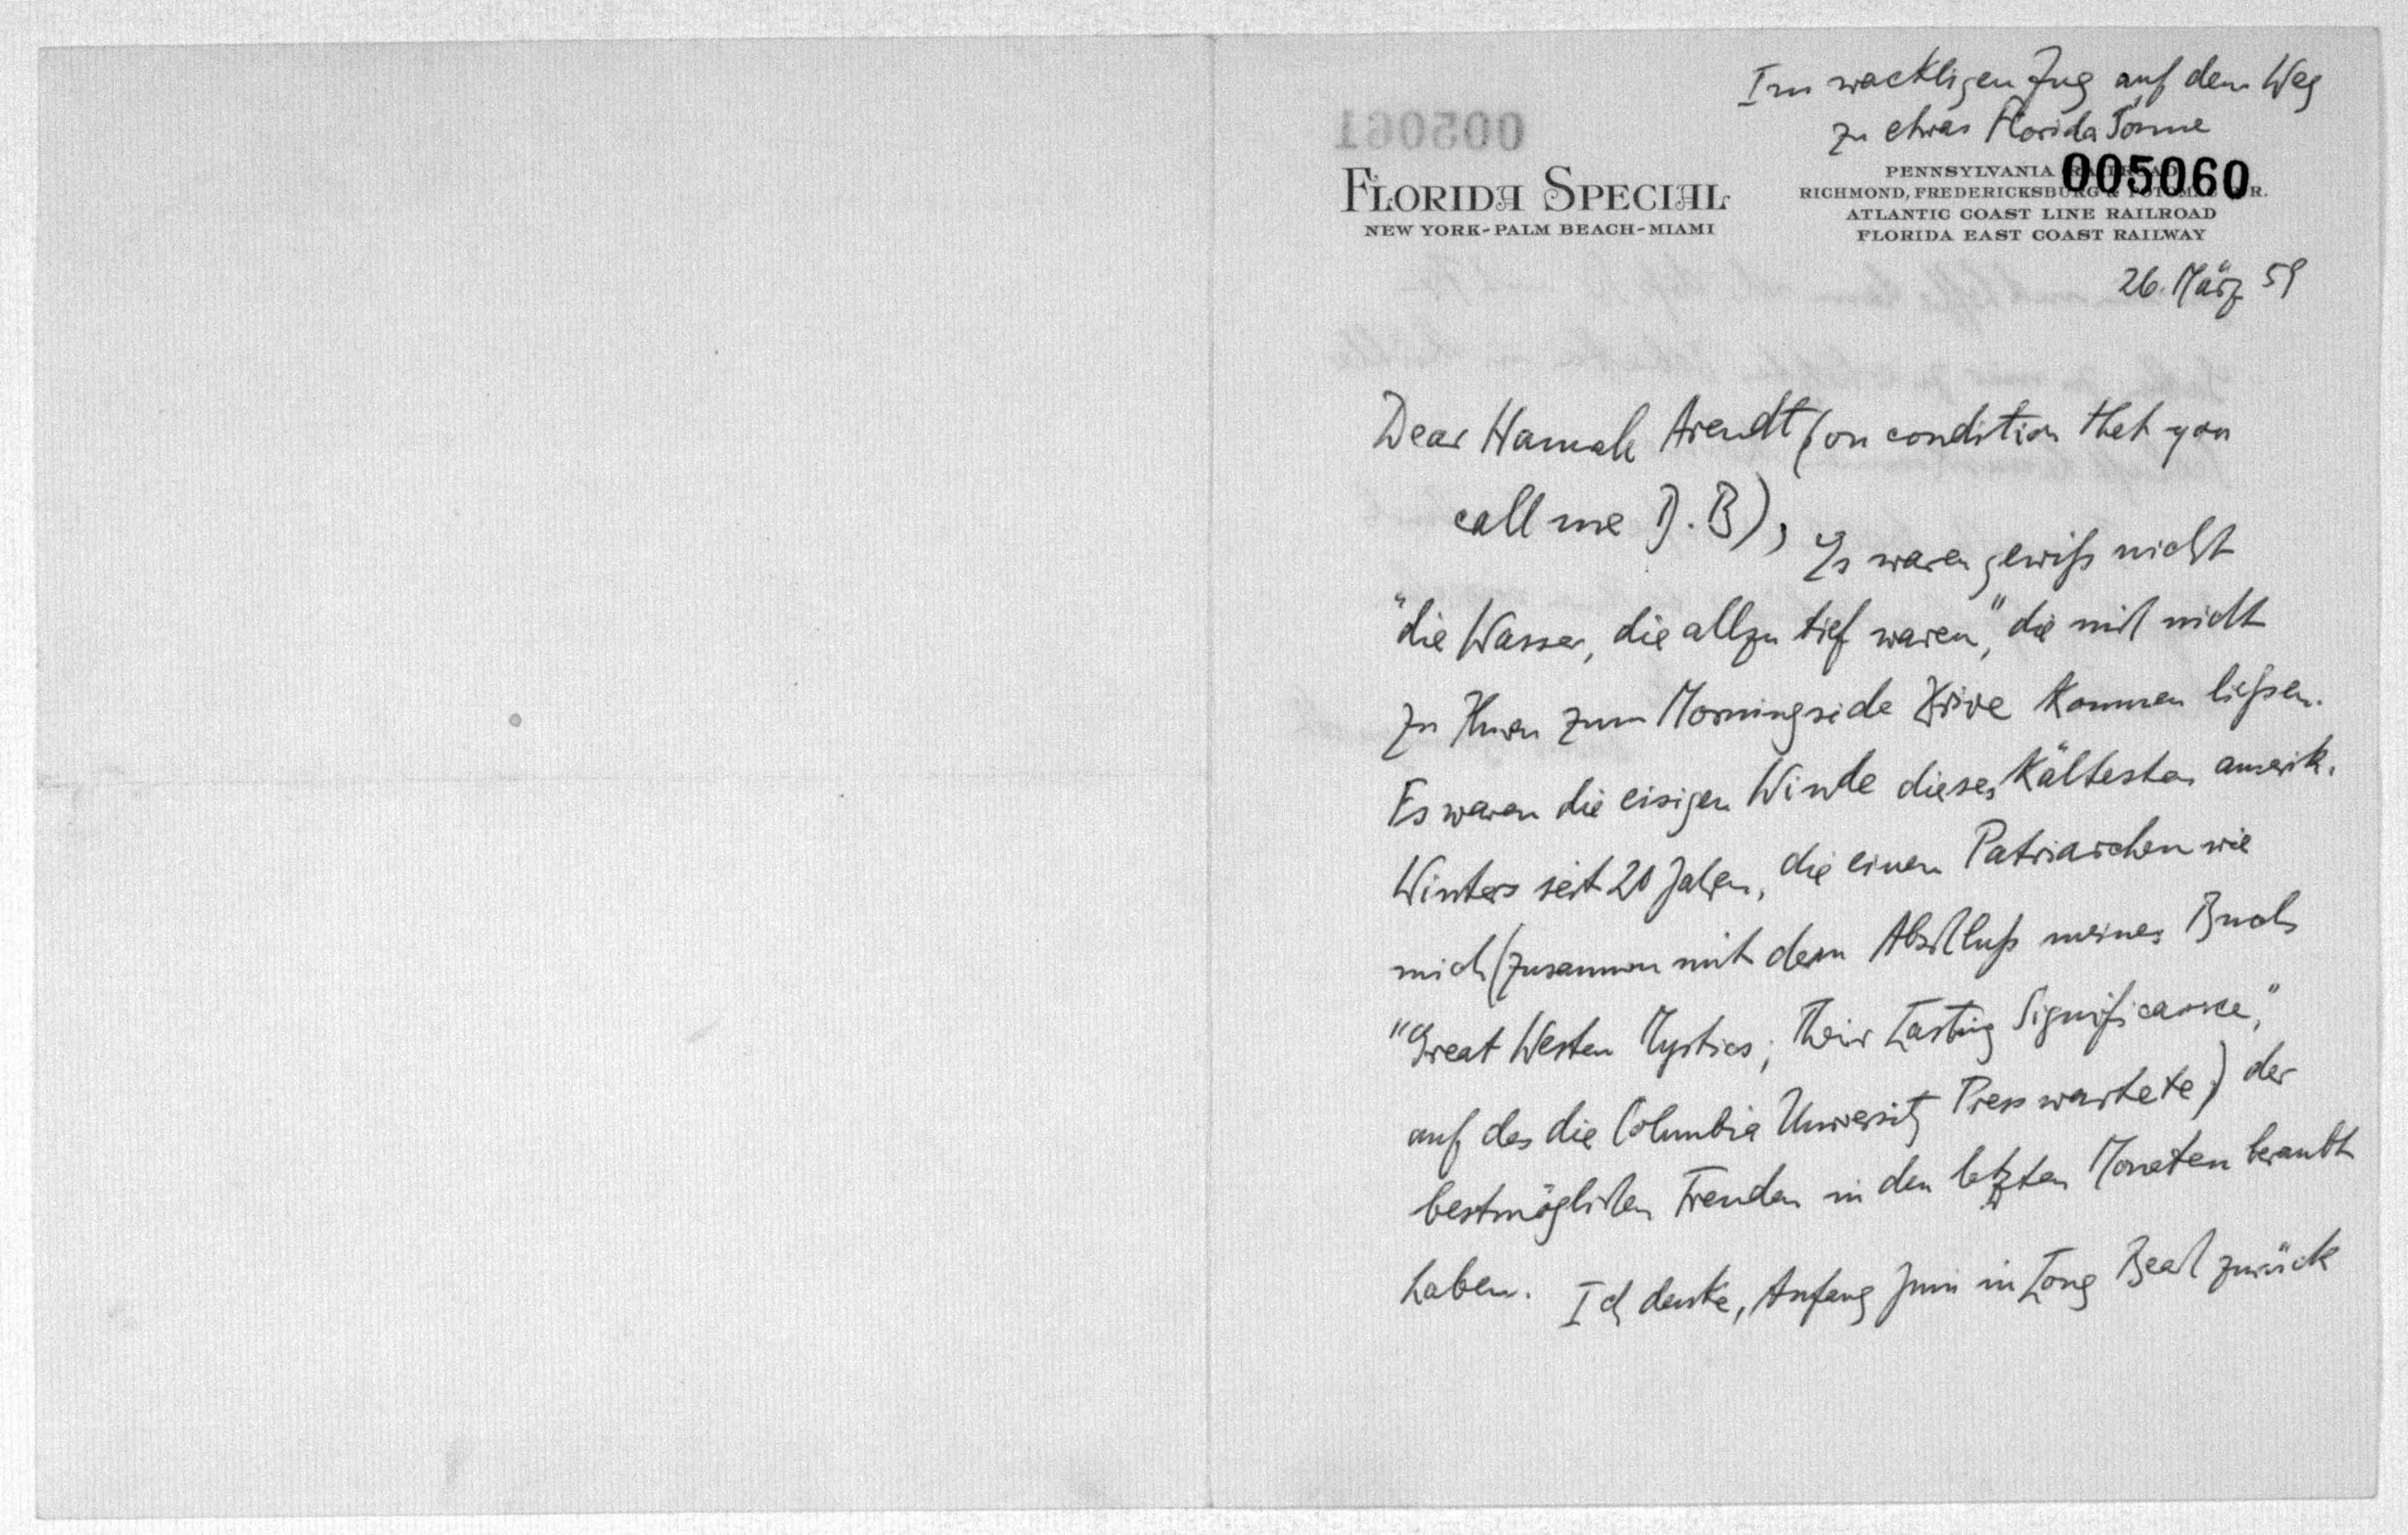 Im wackligen Zug auf dem Weg
zu etwas Florida Sonne
005061
005060
FLORIDA SPECIAL
NEW YORK-PALM BEACH-MIAMI
PENNSYLVANIA RAILROAD
RICHMOND, FREDERICKSBURG & POTOMAC R.R.
ATLANTIC COAST LINE RAILROAD
FLORIDA EAST COAST RAILWAY
26. März 59
Dear Hannah Arendt (on condition that you
call me D. B), Es waren gewiß nicht
"die Wasser, die allzu tief waren", die mich nicht
zu Ihnen zum Morningside Drive kommen ließen.
Es waren die eisigen Winde dieses kältesten amerik.
Winters seit 20 Jahren, die einen Patriarchen wie
mich (zusammen mit dem Abschluß meines Buchs
"Great Western Mystics; Their Lasting Significance,"
auf das die Columbia University Press wartete) der
bestmöglichen Freuden in den letzten Monaten beraubt
haben. Ich denke, Anfang Juni in Long Beach zurück